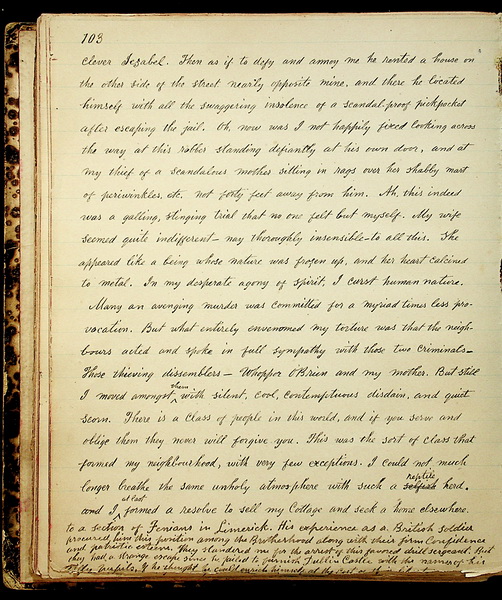 103
clever Jezabel. Then as if to defy and annoy me he rented a house on
the other side of the street nearly opposite mine, and there he located
himself with all the swaggering insolence of a scandal-proof pickpocket
after escaping the jail. Oh, now was I not happily fixed looking across
the way at this robber standing defiantly at his own door, and at
my thief of a scandalous mother sitting in rags over her shabby mart
of periwinkles, etc. not forty feet away from him. Ah, this indeed
was a galling, stinging trial that no one felt but myself. My wife
seemed quite indifferent – nay thoroughly insensible – to all this. She
appeared like a being whose nature was frozen up, and her heart calcined
to metal. In my desperate agony of spirit, I curst human nature.
Many an avenging murder was committed for a myriad times less pro-
vocation. But what entirely envenomed my torture was that the neigh-
bours acted and spoke in full sympathy with those two criminals –
Those thieving dissemblers – Whopper O'Brien and my mother. But still
I moved amongst them with silent, cool, contemptuous disdain, and quiet
scorn. There is a class of people in this world, and if you serve and
oblige them they never will forgive you. This was the sort of class that
formed my neighbourhood, with very few exceptions. I could not much
longer breathe the same unholy atmosphere with such a selfish reptile herd.
and I at last formed a resolve to sell my Cottage and seek a home elsewhere.
to a section of Fenians in Limerick. His experience as a British soldier
procured him this position among the Brotherhood along with their firm Confidence
and patriotic esteem. They slandered me for the arrest of this favored drill sergeant. But
they had a strange escape since he failed to furnish Dublin Castle with the names of his